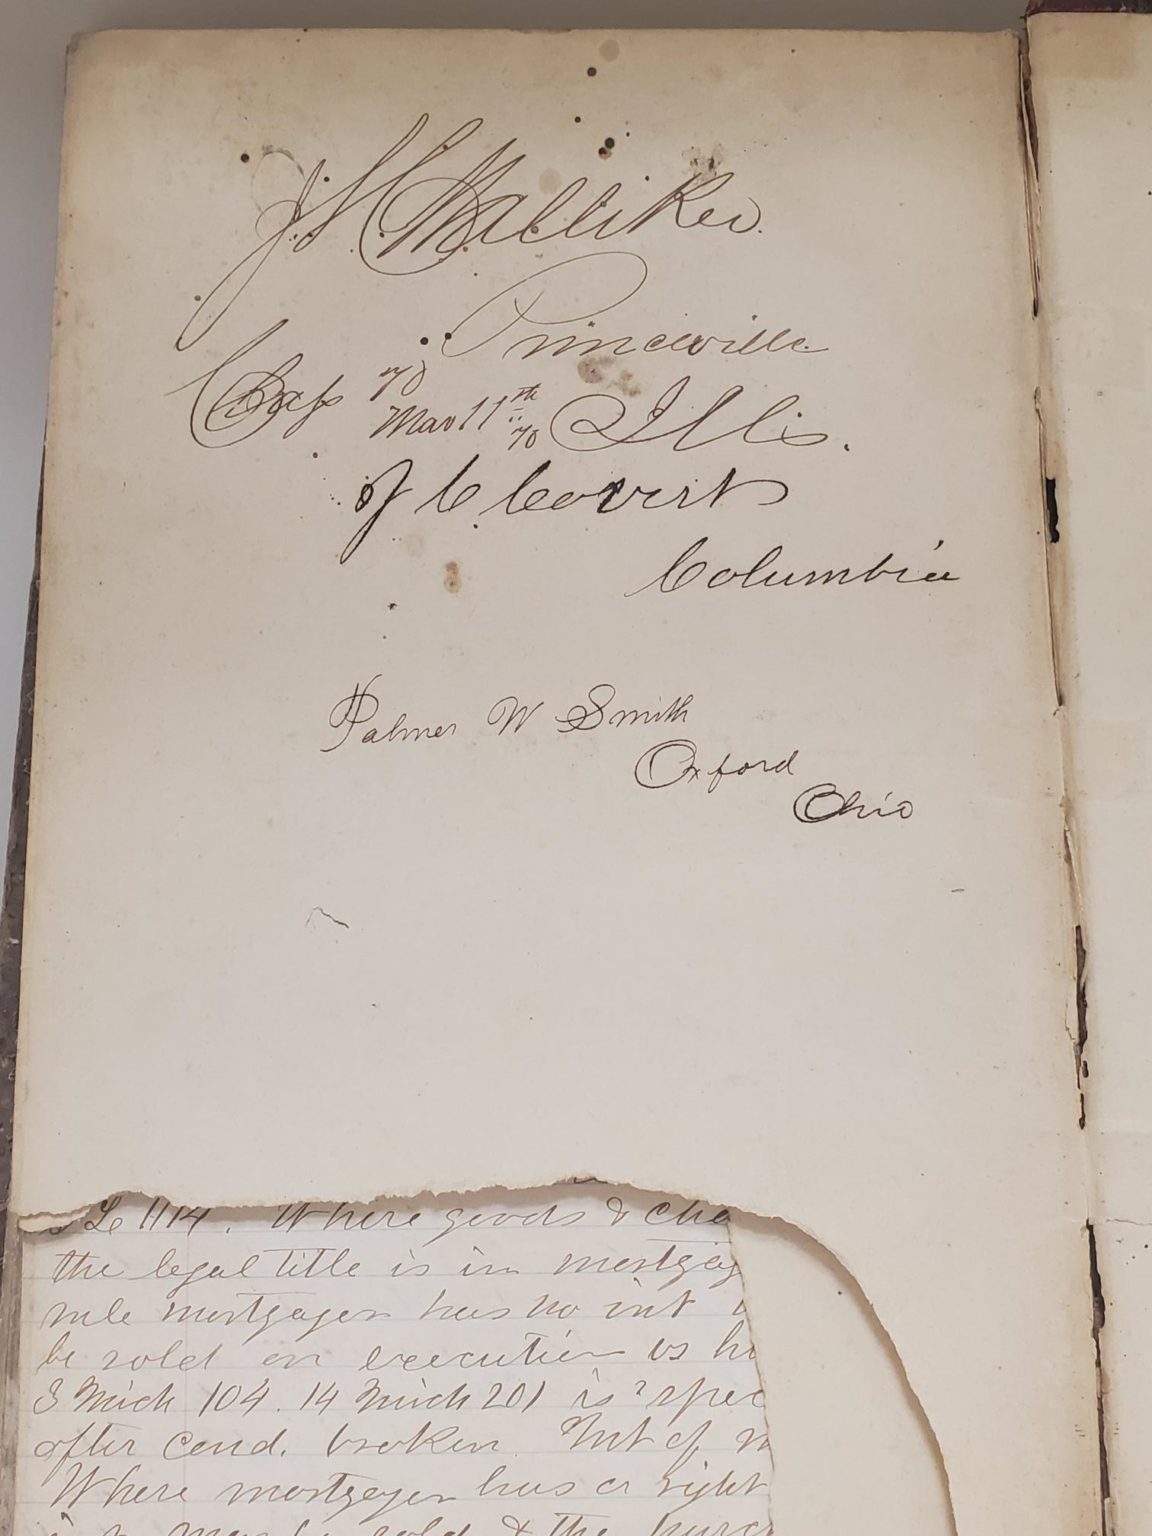 Princeville
70
Mar 11th 70 Ills.
J C Covert
Columbia
Palmer W Smith
Oxford
Ohio
1114. Where goods & cha
the legal title is in mortgag
rule mortgager has no int
be sold on execution vs h
3 Mich 104. 14 Mich 201 is ? spec
after cond. broken. Int of m
Where mortgager has a right
may be sold & the purc